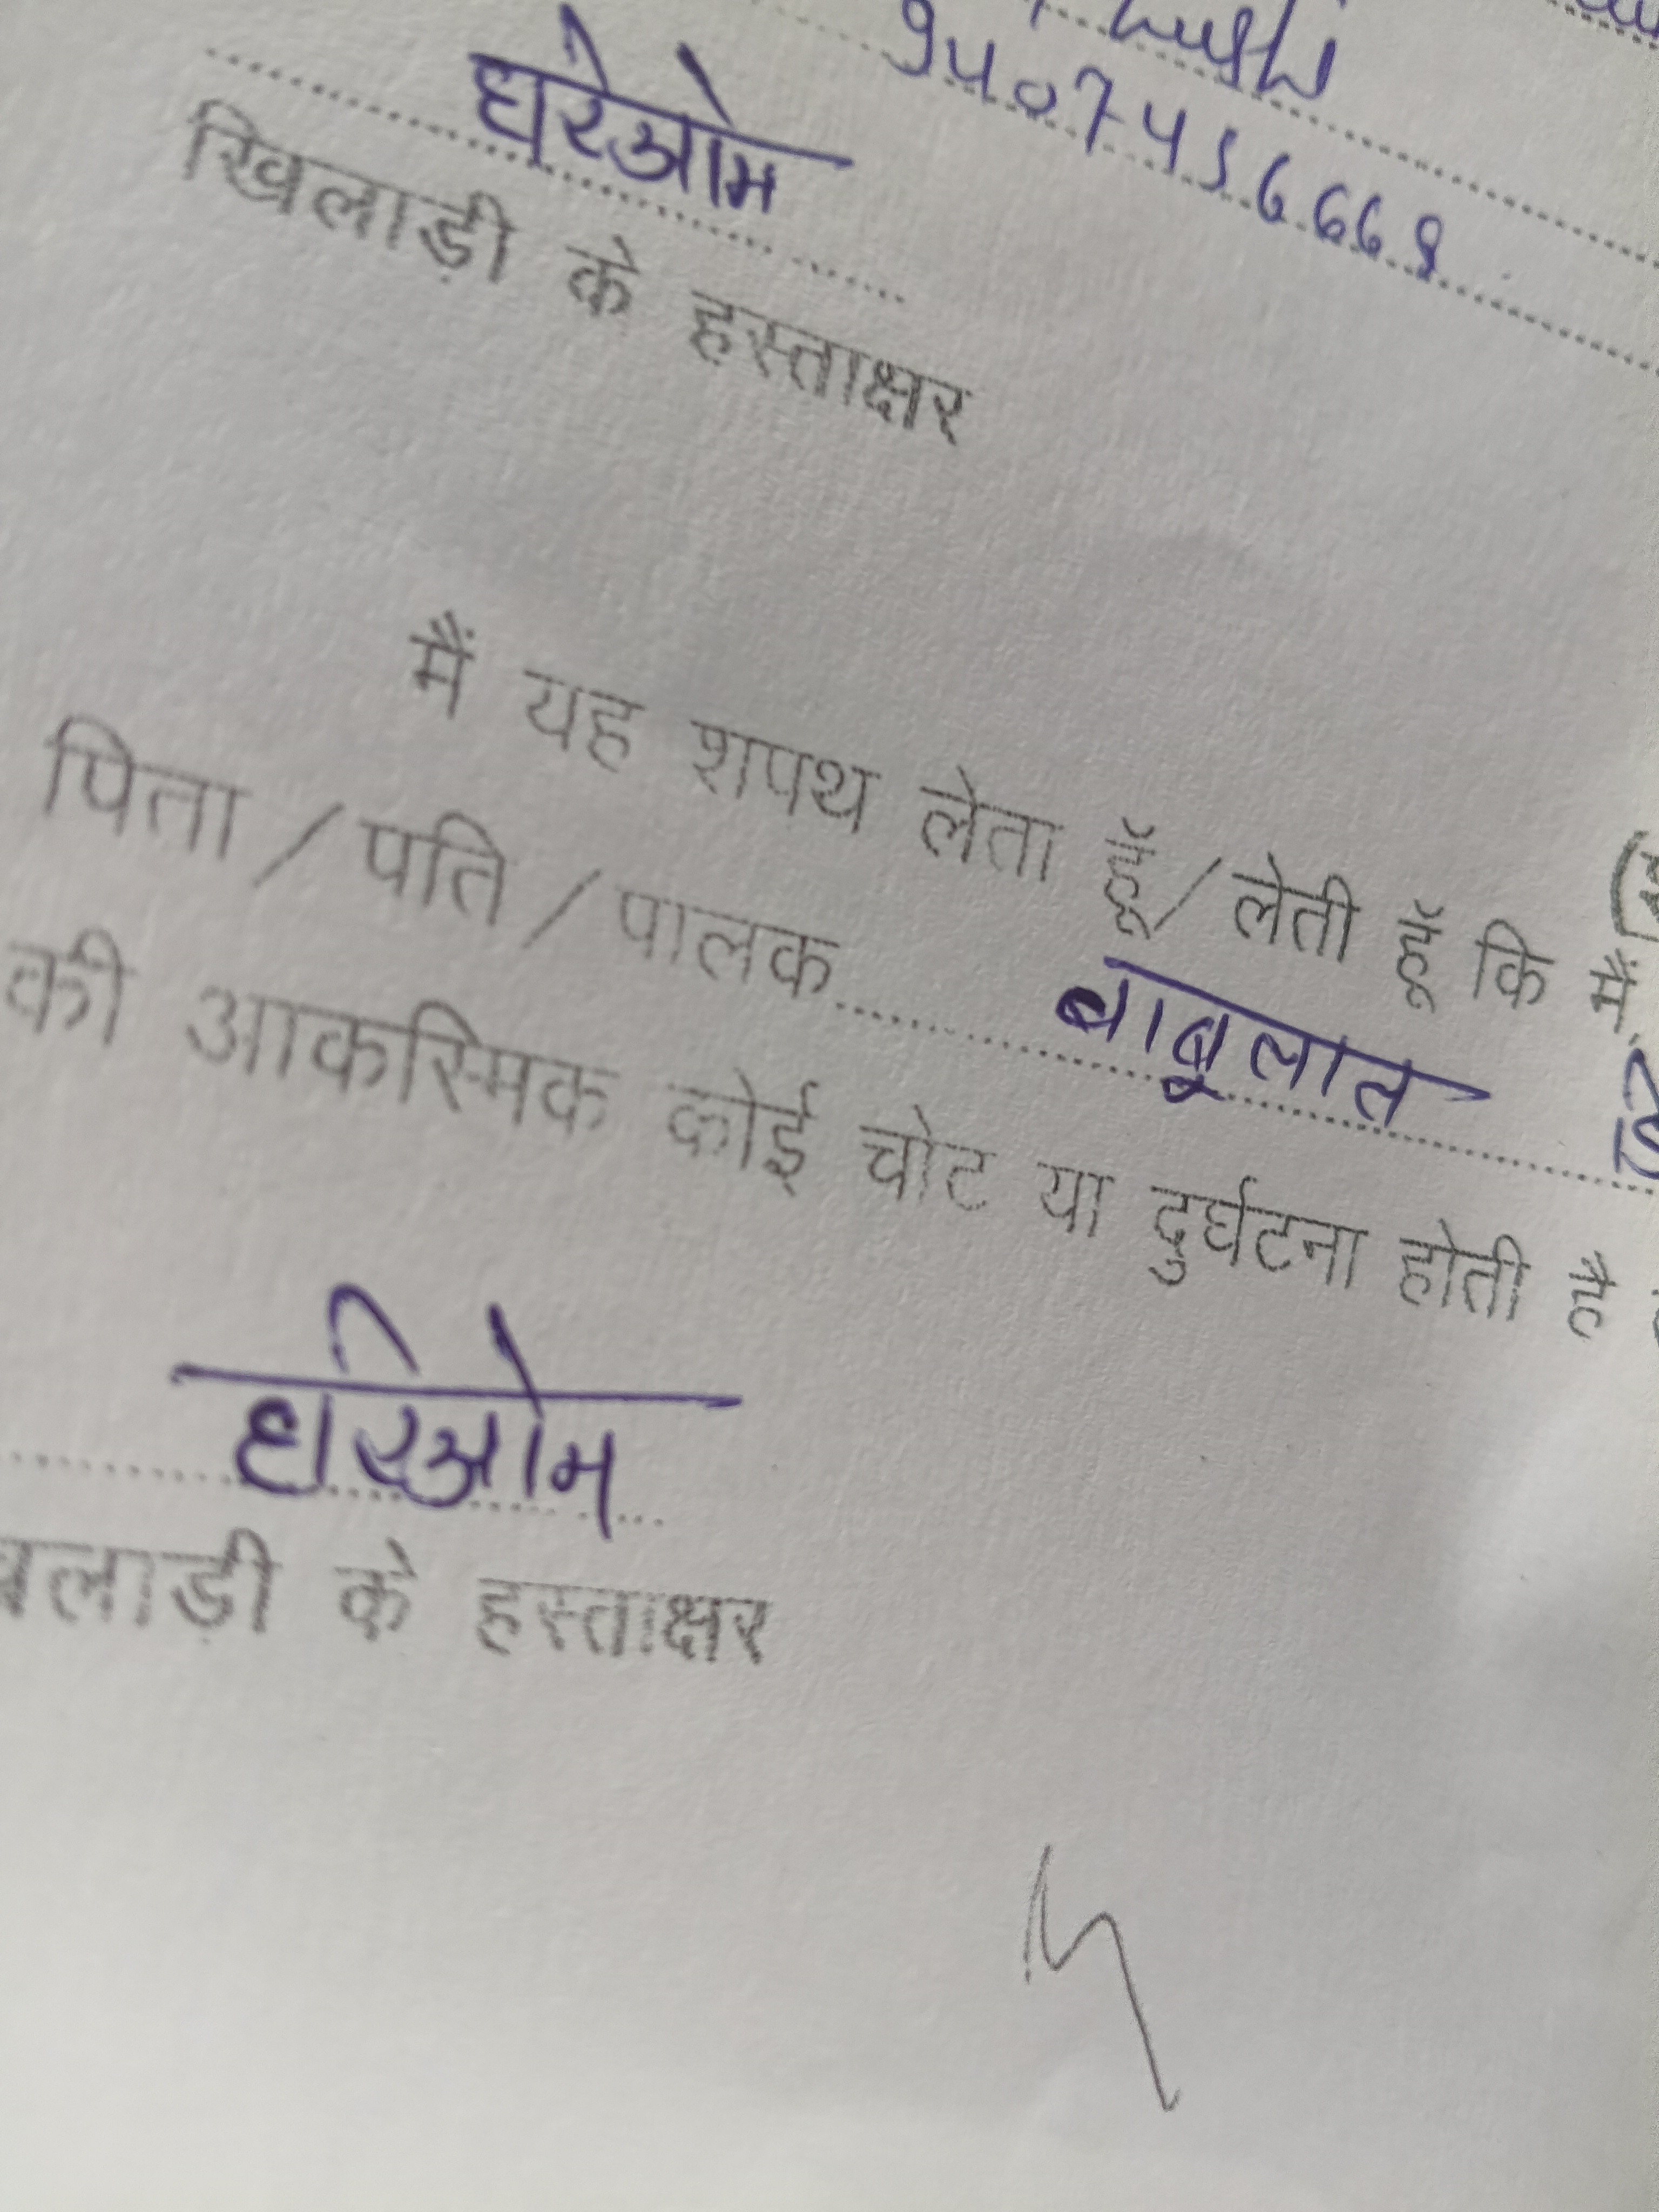 9407456668
हरिओम
खिलाड़ी के हस्ताक्षर
मैं यह शपथ लेता हूँ/लेती हूँ कि मैं
पिता/पति/पालक बाबूलाल
की आकस्मिक कोई चोट या दुर्घटना होती है
हरिओम
के हस्ताक्षर